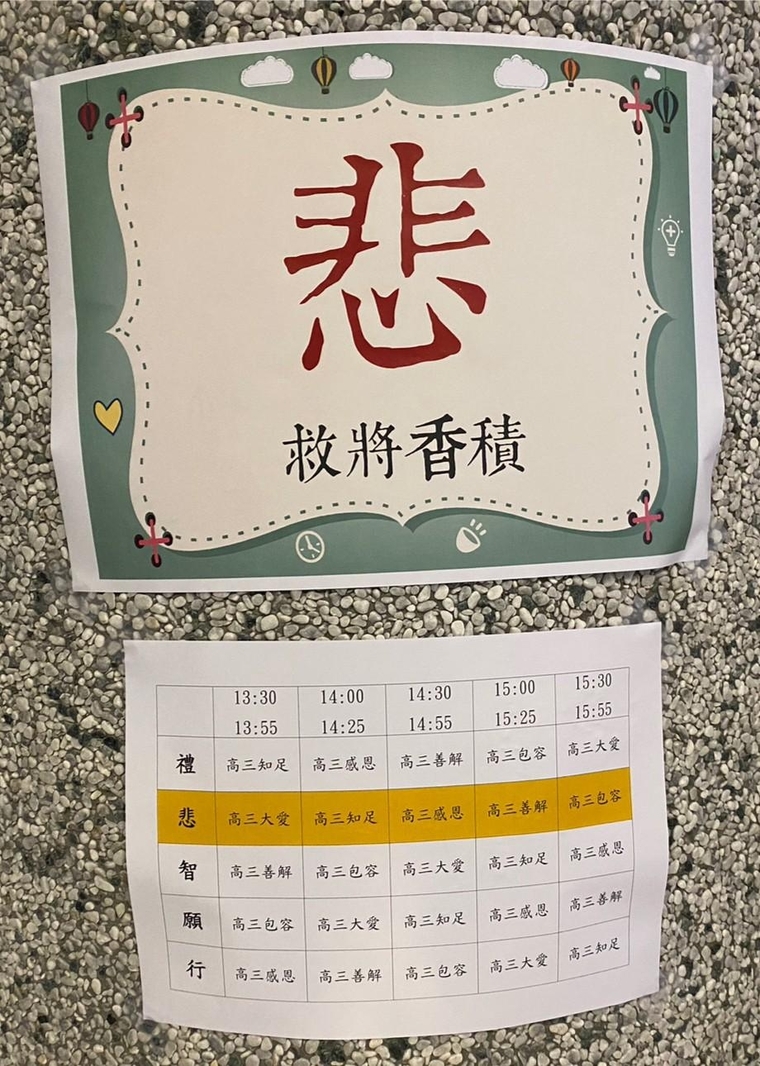 悲
救將香積
13:30 14:00 14:30 15:00 15:30
13:55 14:25 14:55 15:25 15:55
禮 高三知足 高三感恩 高三善解 高三包容 高三大愛
悲 高三大愛 高三知足 高三感恩 高三善解 高三包容
智 高三善解 高三包容 高三大愛 高三知足 高三感恩
願 高三包容 高三大愛 高三知足 高三感恩 高三善解
行 高三感恩 高三善解 高三包容 高三大愛 高三知足